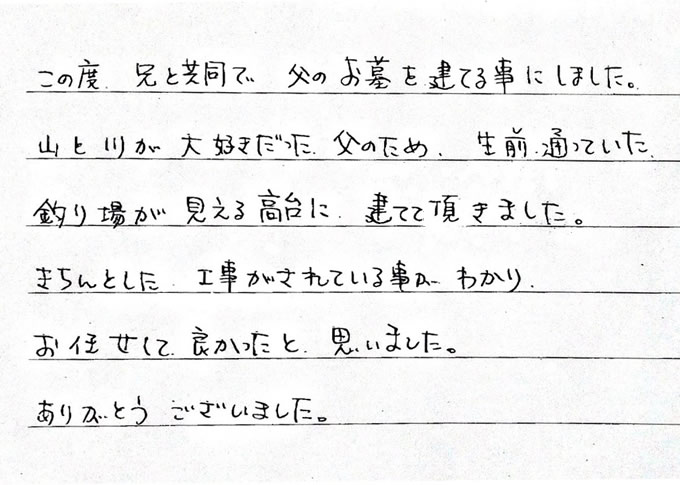 この度、兄と共同で 父のお墓を建てる事にしました。
山と川が大好きだった、父のため、生前、通っていた、
釣り場が見える高台に、建てて頂きました。
きちんとした、工事がされている事が わかり、
お任せして、良かったと、思いました。
ありがとう ございました。